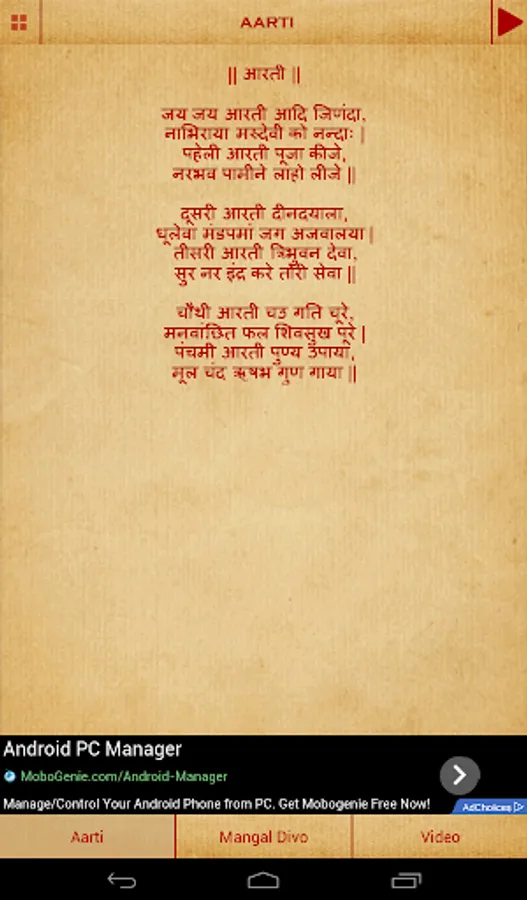 AARTI
|| आरती ||
जय जय आरती आदि जिणंदा,
नाभिराया मरुदेवी को नन्दाः |
पहेली आरती पूजा कीजे,
नरभव पामीने लाहो लीजे ||
दूसरी आरती दीनदयाला,
धूलेवा मंडपमां जग अजवालया |
तीसरी आरती त्रिभुवन देवा,
सुर नर इंद्र करे तोरी सेवा ||
चौथी आरती चउ गति चूरे,
मनवांछित फल शिवसुख पूरे |
पंचमी आरती पुण्य उपाया,
मूल चंद ऋषभ गुण गाया ||
Android PC Manager
MoboGenie.com/Android-Manager
Manage/Control Your Android Phone from PC. Get Mobogenie Free Now!
AdChoices
Aarti
Mangal Divo
Video